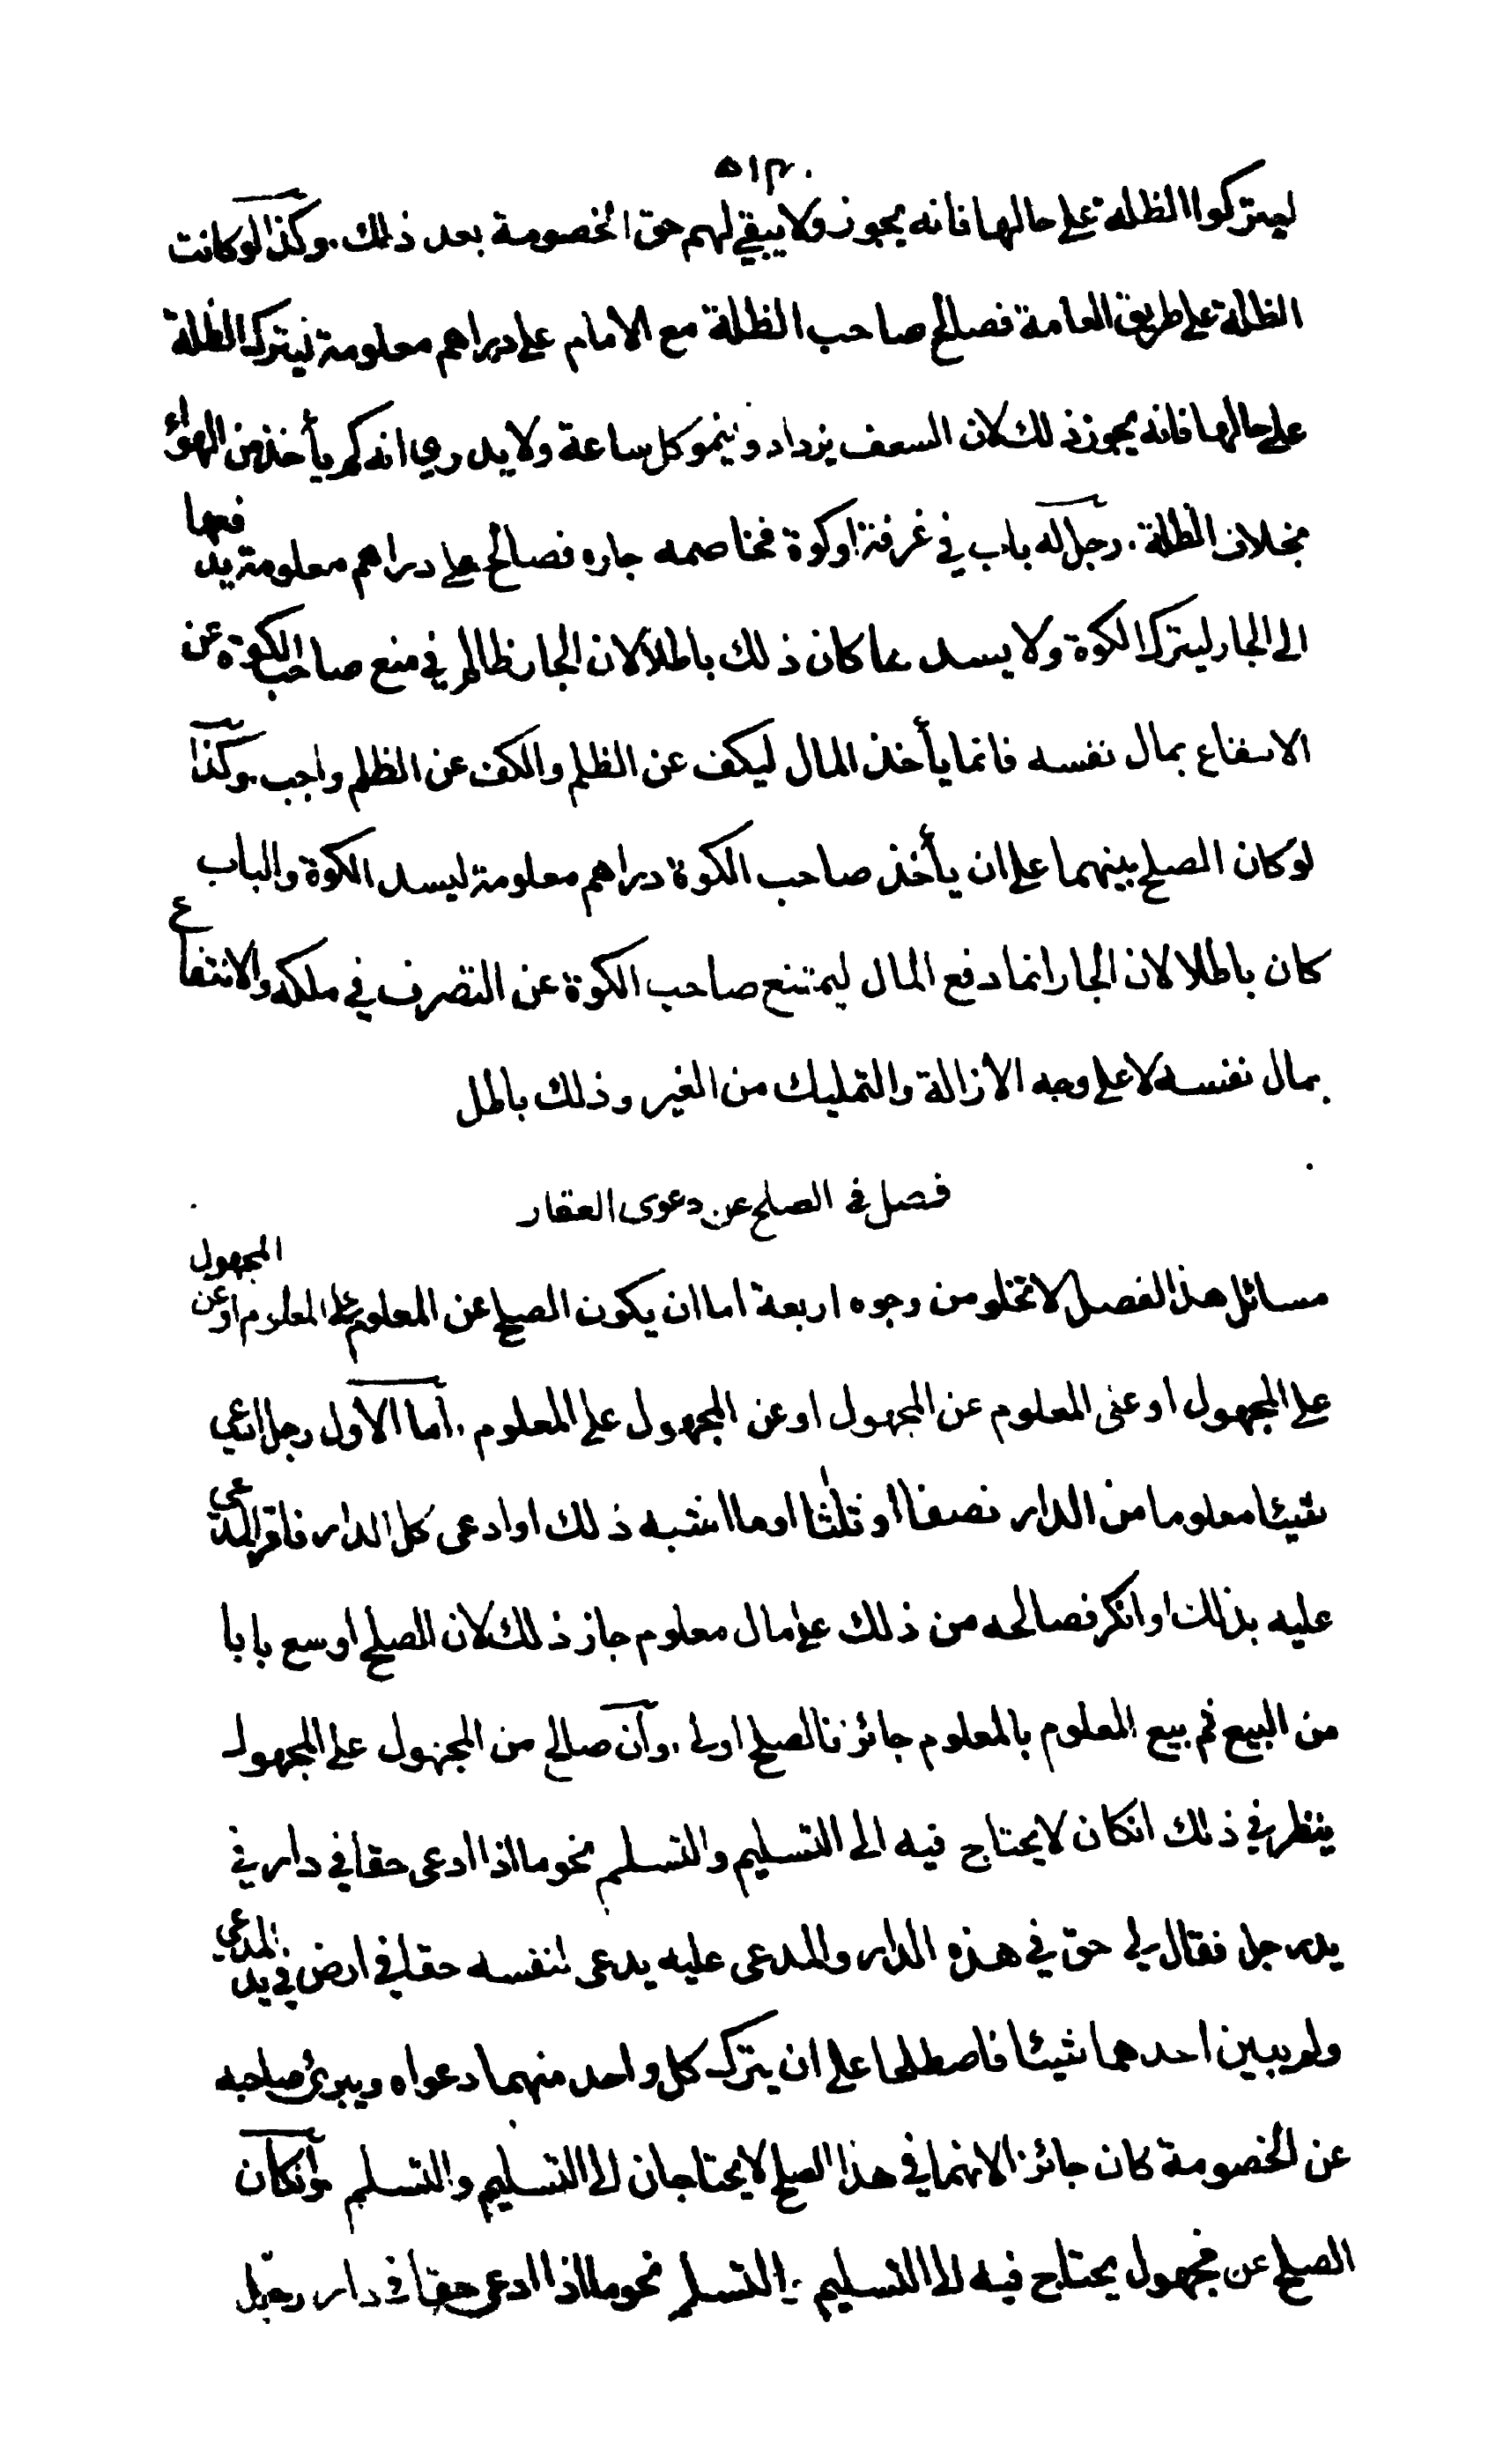 ٥١٣
ليتركوا الظلة على حالها فانه يجوز ولا يبقى لهم حق الخصومة بعد ذلك. وكذا لو كانت
الظلة على طريق العامة فصالح صاحب الظلة مع الامام على دراهم معلومة ليترك الظلة
على حالها فانه يجوز ذلك لان السعف يزداد وينمو كل ساعة ولا يدرى انه كم يأخذ من الهواء
بخلاف الظلة. رجل له باب في غرفة او كوة فخاصمه جاره فصالح على دراهم معلومة يدفعها
الى الجار ليترك الكوة ولا يسد بما كان ذلك باطلا لان الجار ظالم في منع صاحب الكوة عن
الانتفاع بمال نفسه فانما يأخذ المال ليكف عن الظلم والكف عن الظلم واجب. وكذا
لو كان الصلح بينهما على ان يأخذ صاحب الكوة دراهم معلومة ليسد الكوة والباب
كان باطلا لان الجار انما دفع المال ليمتنع صاحب الكوة عن التصرف في ملكه والانتفاع
بمال نفسه لا على وجه الازالة والتمليك من الغير وذلك باطل
فصل في الصلح عن دعوى العقار
مسائل هذا الفصل لا تخلو من وجوه اربعة اما ان يكون الصلح عن المعلوم على المعلوم او عن المجهول
على المجهول او عن المعلوم عن المجهول او عن المجهول على المعلوم. اما الاول رجل ادعى
شيئا معلوما من الدار نصفا او ثلثا او ما اشبه ذلك او ادعى كل الدار فاقر المدعى
عليه بذلك او انكر فصالحه من ذلك على مال معلوم جاز ذلك لان الصلح اوسع بابا
من البيع ثم بيع المعلوم بالمعلوم جائز فالصلح اولى. وان صالح من المجهول على المجهول
ينظر في ذلك انكان لا يحتاج فيه الى التسليم والتسلم نحو ما اذا ادعى حقا في دار في
يد رجل فقال لي حق في هذه الدار والمدعى عليه يدعى لنفسه حقا في ارض في يد المدعي
ولم يبين احدهما شيئا فاصطلحا على ان يترك كل واحد منهما دعواه ويبرئ صاحبه
عن الخصومة كان جائزا لانهما في هذا الصلح لا يحتاجان الى التسليم والتسلم وانكان
الصلح عن مجهول يحتاج فيه الى التسليم والتسلم نحو ما اذا ادعى حقا في دار رجل